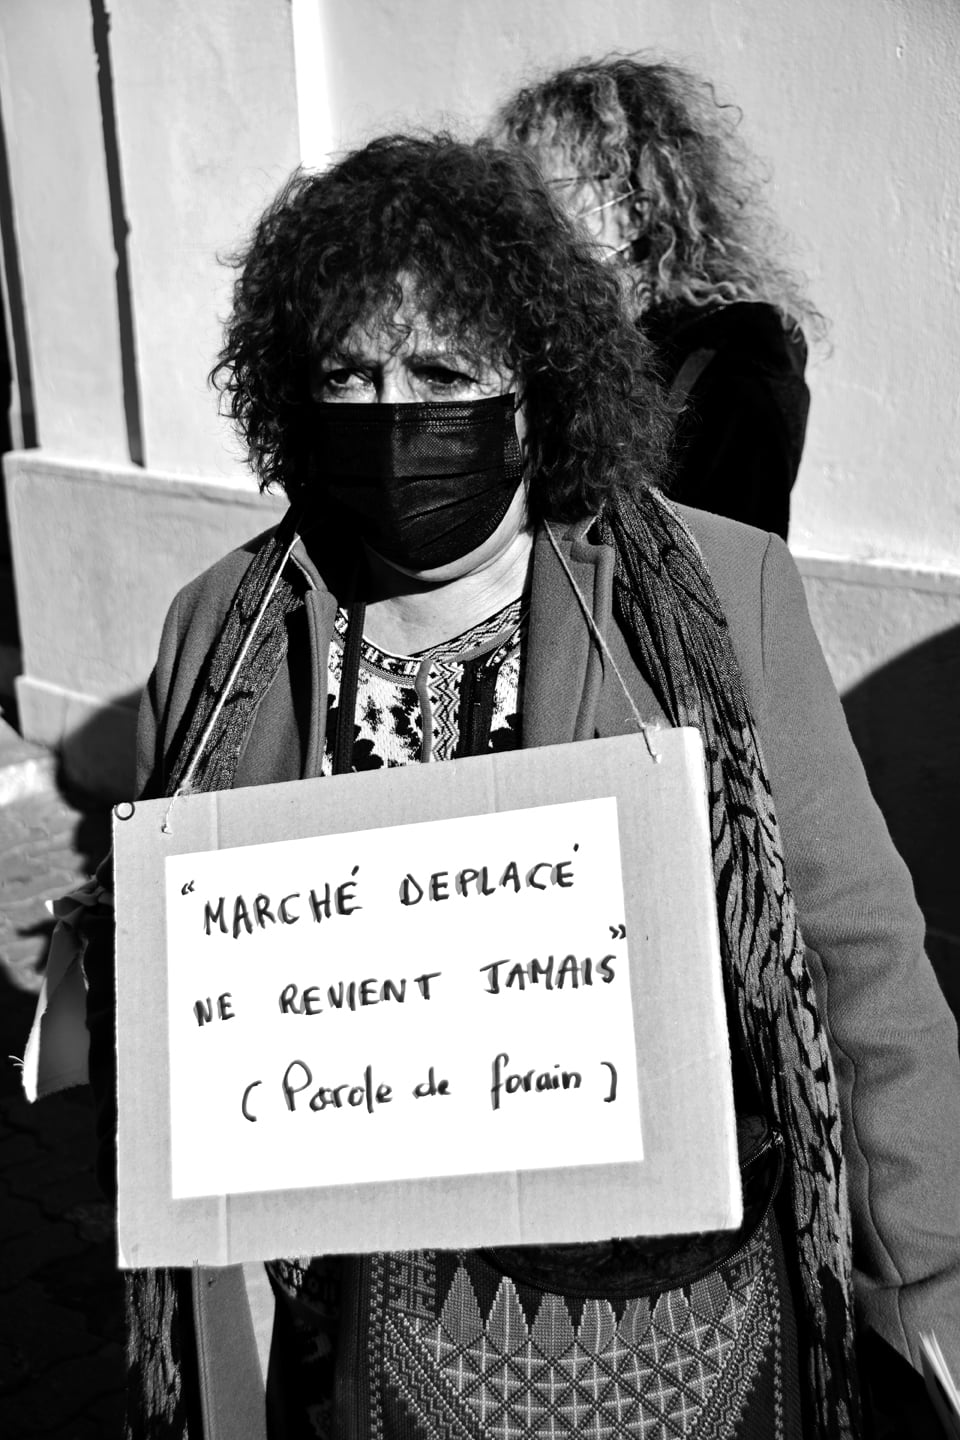 “MARCHÉ DEPLACÉ
NE REVIENT JAMAIS”
(Parole de forain)